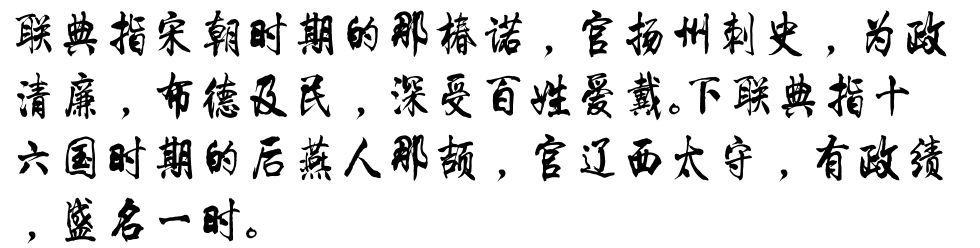 联典指宋朝时期的那椿诺，官扬州刺史，为政
清廉，布德及民，深受百姓爱戴。下联典指十
六国时期的后燕人那颉，官辽西太守，有政绩
，盛名一时。